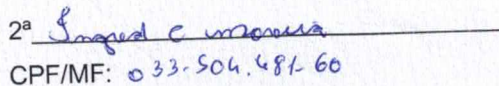 2ª Ingred C Moreira
CPF/MF: 033.504.481-60